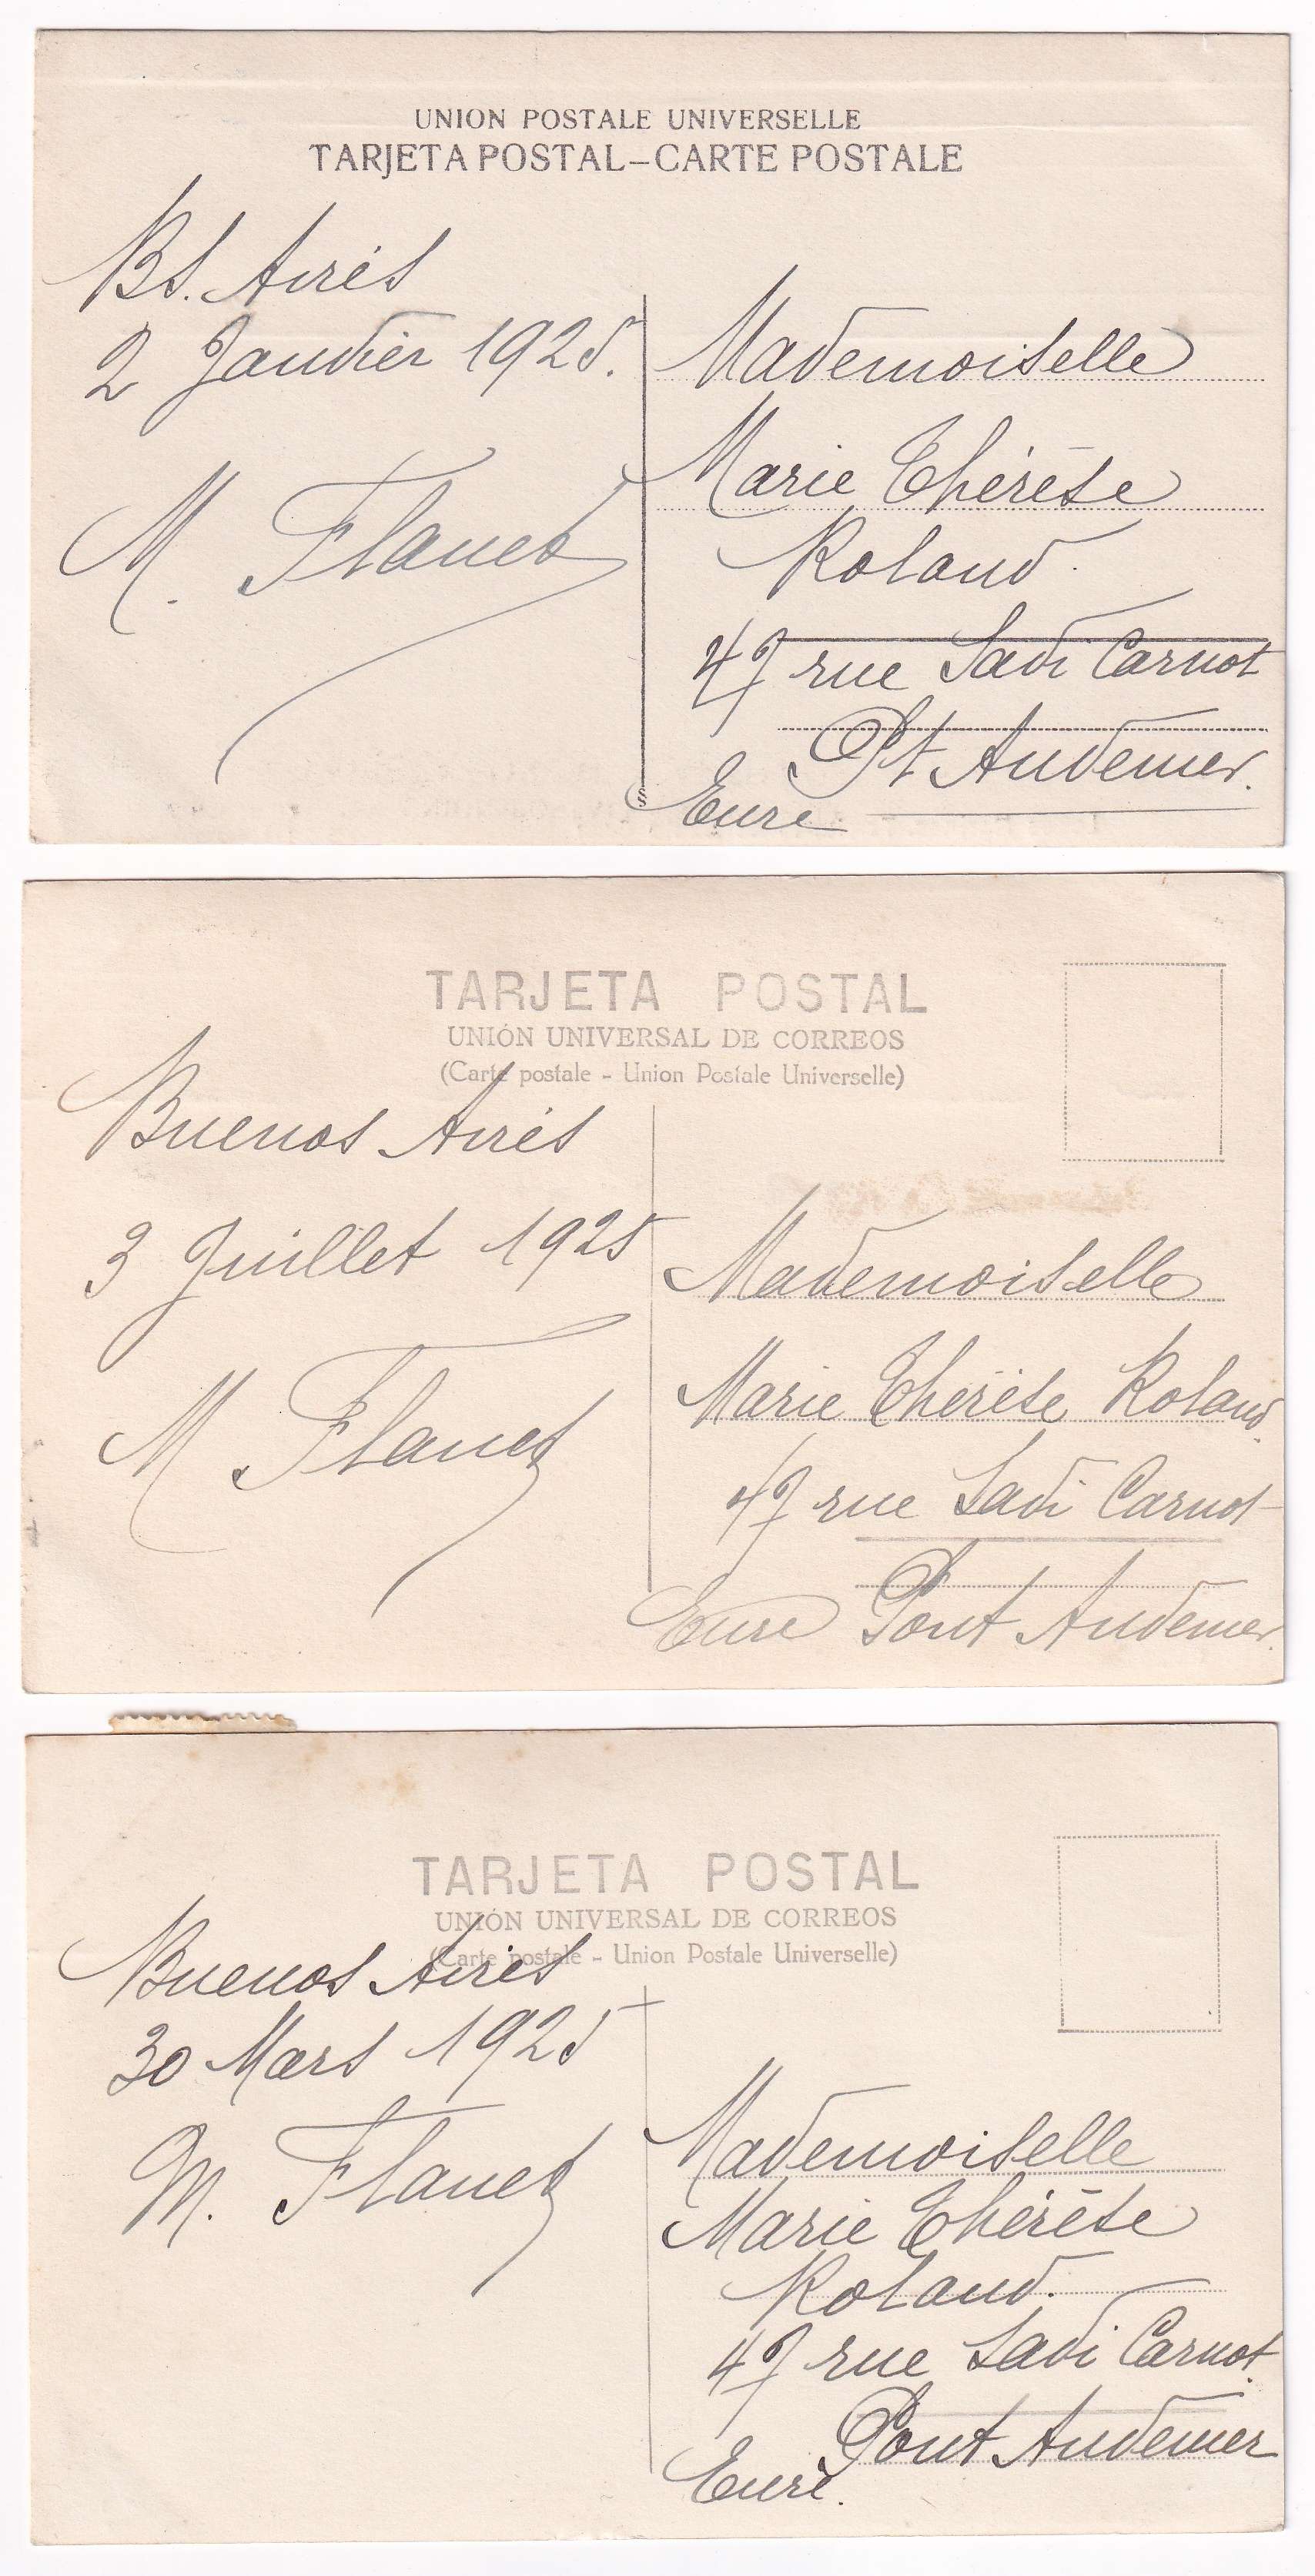 UNION POSTALE UNIVERSELLE
TARJETA POSTAL–CARTE POSTALE
Bs. Airés
2 Janvier 1925.
M. Flanet
Mademoiselle
Marie Thérèse
Roland.
47 rue Sadi Carnot
Pt Audemer.
Eure
TARJETA POSTAL
UNIÓN UNIVERSAL DE CORREOS
(Carte postale - Union Postale Universelle)
Buenos Airés
3 Juillet 1925
M Flanet
Mademoiselle
Marie Thérèse Roland.
47 rue Sadi Carnot
Eure Pont Audemer.
TARJETA POSTAL
UNIÓN UNIVERSAL DE CORREOS
(Carte postale - Union Postale Universelle)
Buenos Airés
30 Mars 1925
M. Flanet
Mademoiselle
Marie Thérèse
Roland.
47 rue Sadi Carnot.
Pont Audemer
Eure.